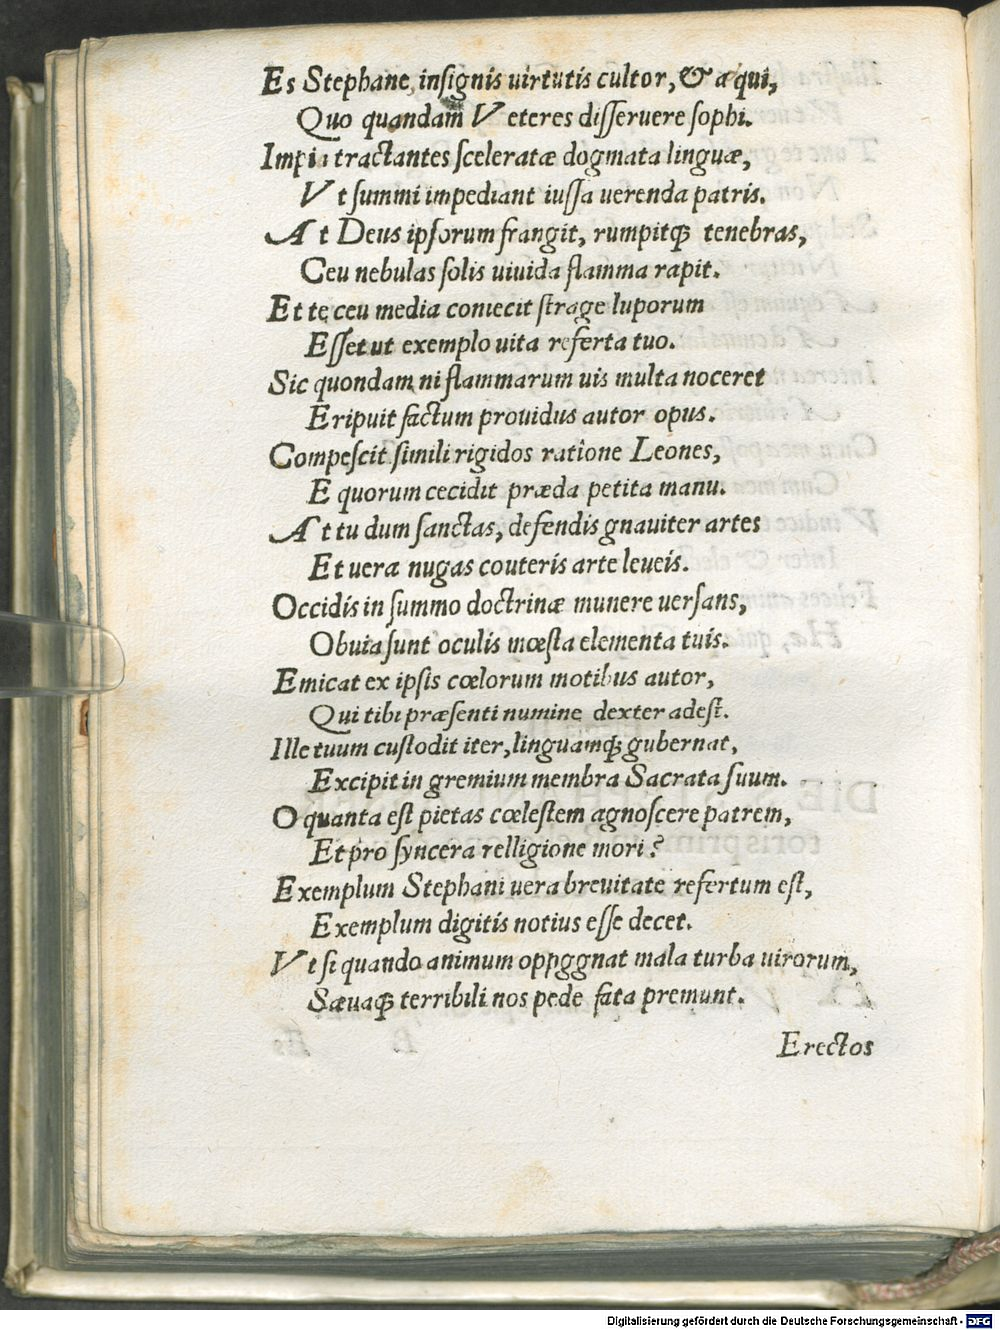 Es Stephane, insignis uirtutis cultor, & æqui,
Quo quandam Veteres disseruere sophi.
Impia tractantes sceleratæ dogmata linguæ,
Vt summi impediant iussa uerenda patris.
At Deus ipsorum frangit, rumpitq́; tenebras,
Ceu nebulas solis uiuida flamma rapit.
Et te ceu media coniecit strage luporum
Esset ut exemplo uita referta tuo.
Sic quondam ni flammarum uis multa noceret
Eripuit factum prouidus autor opus.
Compescit simili rigidos ratione Leones,
E quorum cecidit præda petita manu.
At tu dum sanctas, defendis gnauiter artes
Et uera nugas couteris arte leueis.
Occidis in summo doctrinæ munere uersans,
Obuia sunt oculis mœsta elementa tuis.
Emicat ex ipsis cœlorum motibus autor,
Qui tibi præsenti numine dexter adest.
Ille tuum custodit iter, linguamq́; gubernat,
Excipit in gremium membra Sacrata suum.
O quanta est pietas cœlestem agnoscere patrem,
Et pro syncera relligione mori?
Exemplum Stephani uera breuitate refertum est,
Exemplum digitis notius esse decet.
Vt si quando animum oppggnat mala turba uirorum,
Sæuaq́; terribili nos pede fata premunt.
Erectos
Digitalisierung gefördert durch die Deutsche Forschungsgemeinschaft - DFG